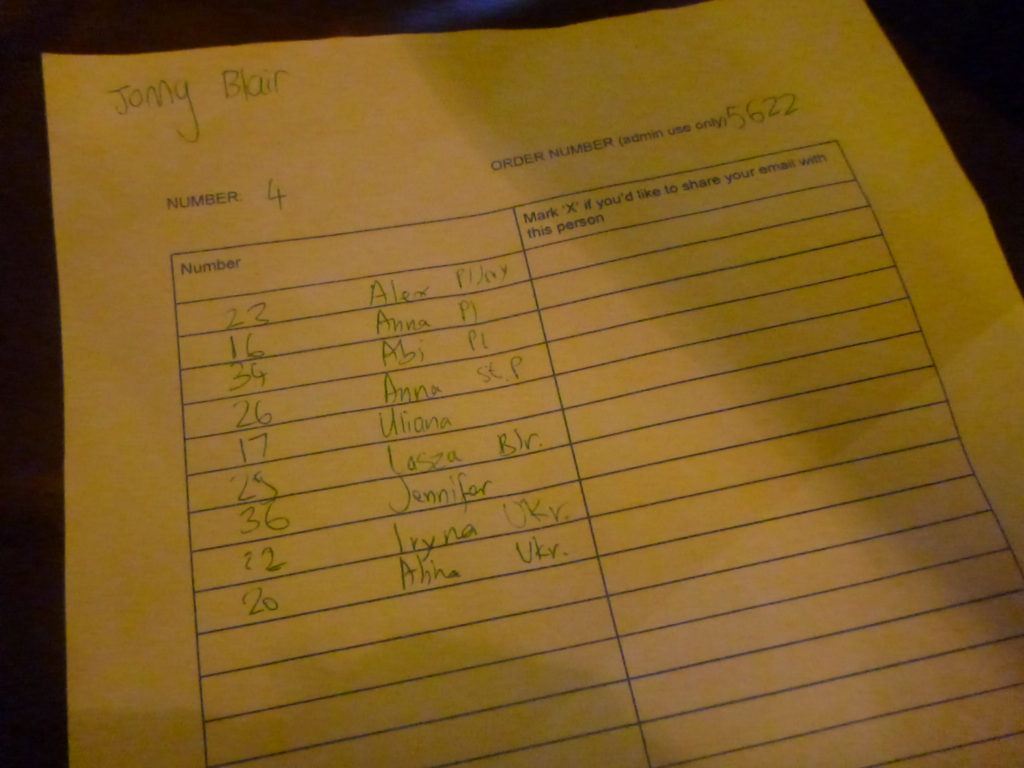 Jonny Blair
ORDER NUMBER (admin use only) 5622
NUMBER: 4
Number Mark 'X' if you'd like to share your email with
this person
23 Alex Pl/
16 Anna Pl
34 Abi Pl
26 Anna St.P
17 Uliana
25 Lasza Blr.
36 Jennifer
22 Iryna Ukr.
20 Alina Ukr.